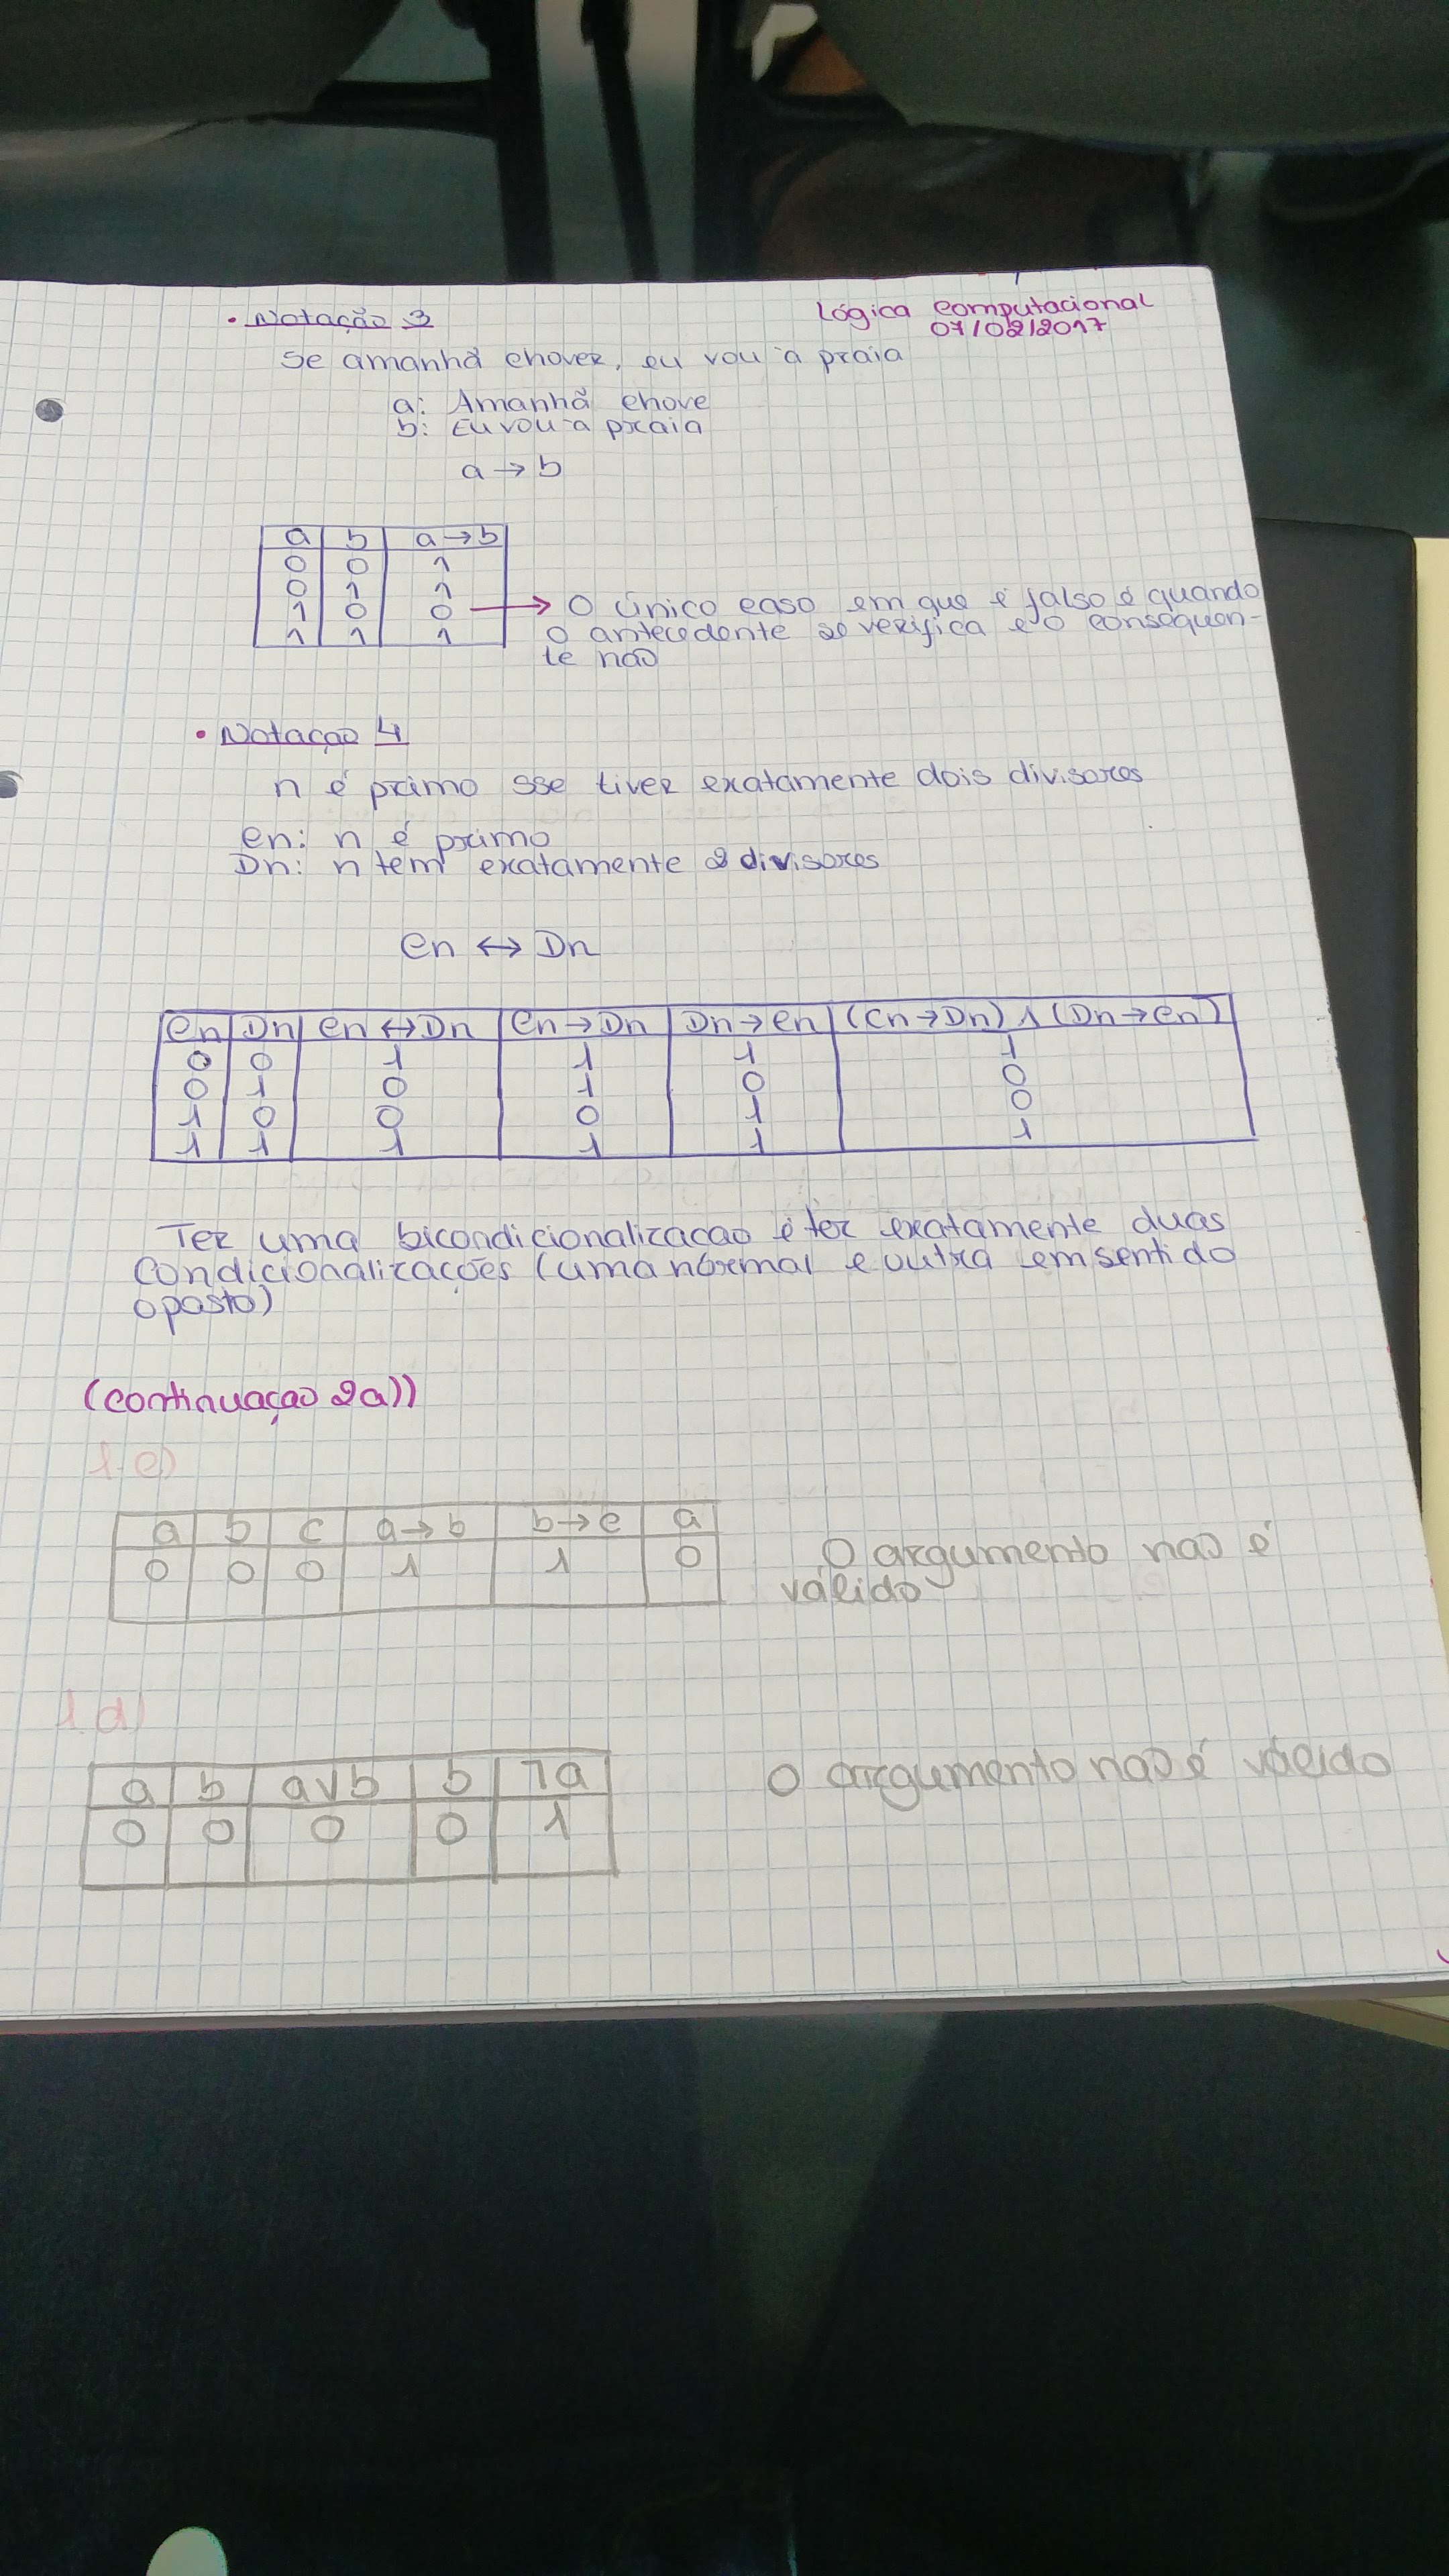 Lógica Computacional
07/02/2017
• Notação 3
Se amanhã chover, eu vou à praia
a: Amanhã chove
b: Eu vou à praia
a → b
a b a → b
0 0 1
0 1 1
1 0 0 → O único caso em que é falso é quando
1 1 1 o antecedente se verifica e o consequen-
te não
• Notaçao 4
n é primo sse tiver exatamente dois divisores
Cn: n é primo
Dn: n tem exatamente 2 divisores
Cn ↔ Dn
Cn Dn Cn ↔ Dn Cn → Dn Dn → Cn (Cn → Dn) ∧ (Dn → Cn)
0 0 1 1 1 1
0 1 0 1 0 0
1 0 0 0 1 0
1 1 1 1 1 1
Ter uma bicondicionalizacao é ter exatamente duas
condicionalizações (uma normal e outra em sentido
oposto)
(continuaçao 2a))
a b c a → b b → c a
0 0 0 1 1 0
O argumento nao é
válido
a b a ∨ b b ¬a
0 0 0 0 1
O argumento nao é válido